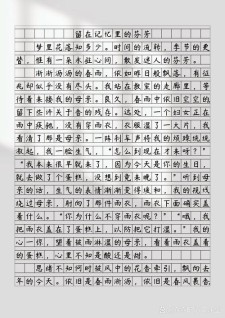 留在记忆里的芬芳
梦里花落知多少。时间的流转,季节的更
替,惟有一朵永驻心间,散发迷人的芬芳。
渐渐沥沥的春雨,依如昨日般飘落,有位
乱却似乎没有尽头。我站在教室的走廊里,等
待着来接我的母亲。良久,春雨中依旧空空的
留下些许关于鲁的残存。远处,一个妇女正在
雨中疾驰,没有穿雨衣,衣服湿了一大片,我
看清了那是母亲,一阵刹车声将我的思绪统统
收起,我一脸生气,“怎么到现在才来呀?”
“我本来很早就来了,因为今天是你的生日,
就去做了个蛋糕,没想到竟来晚了。”听到母
亲的话,生气的表情渐渐变得缓和,我的视线
绕过母亲,射向了那件雨衣,雨衣下面确实盖
着什么。“你为什么不穿雨衣呢?”“哦,我
把雨衣盖在了蛋糕上,以防把它打湿。”我的
心一惊,望着被雨淋湿的母亲,看着雨衣盖着
的蛋糕,心里不知是酸还是甜。
思绪不知何时被风中的花香牵引,飘向去
年的今天。依旧是春雨渐沥,依旧是春风裹着